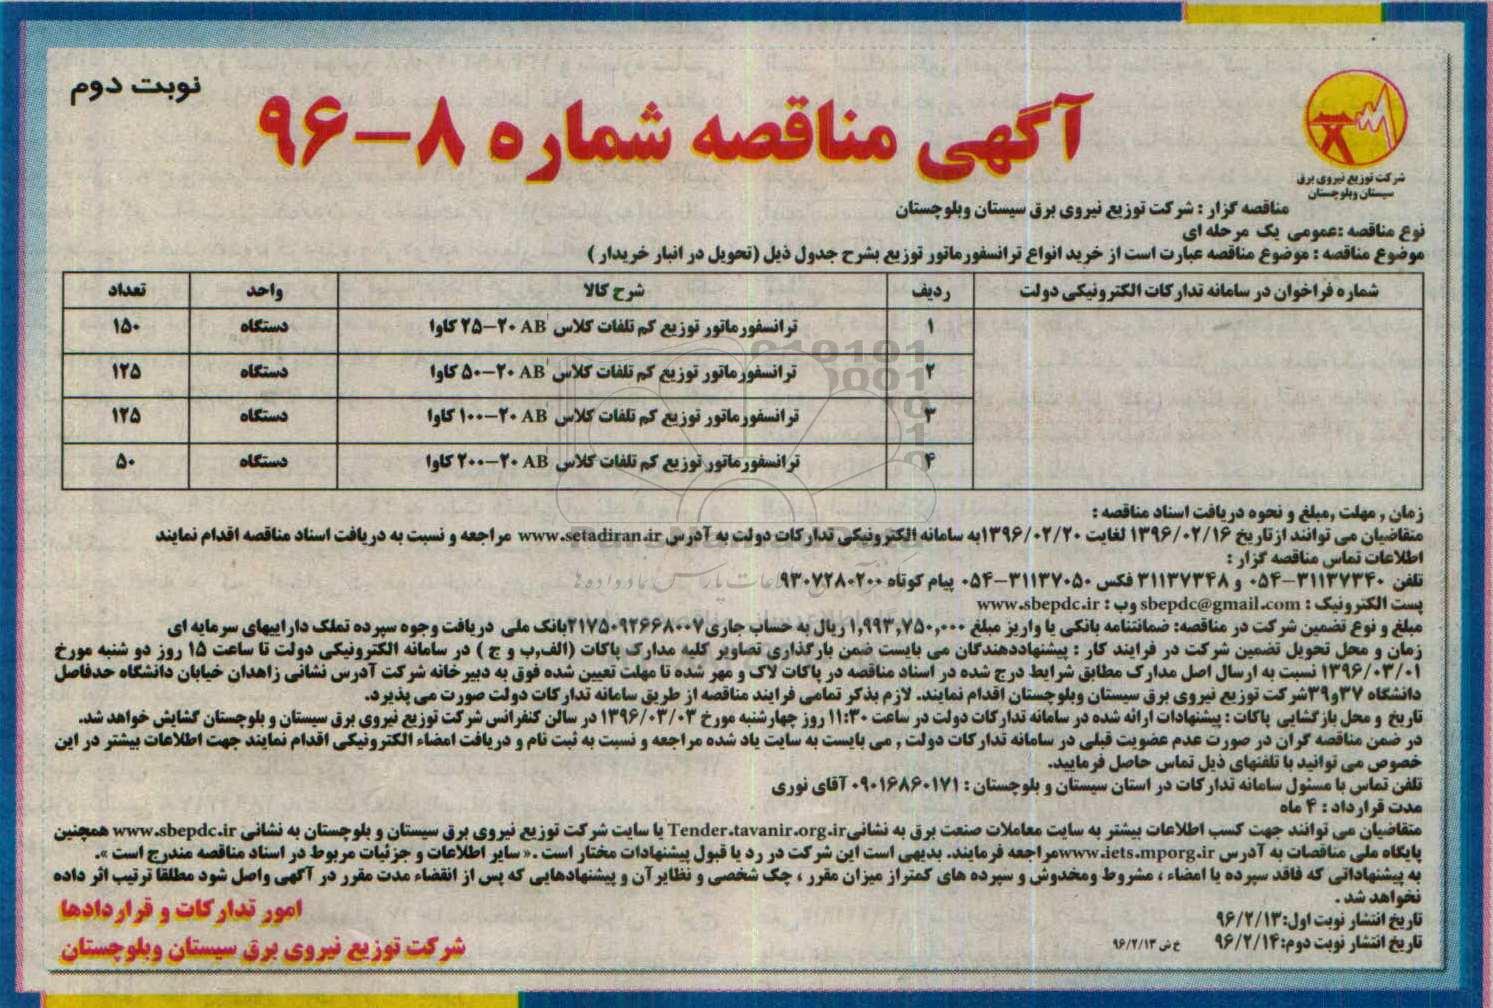 نوبت دوم
آگهی مناقصه شماره ۸-۹۶
شرکت توزیع نیروی برق
سیستان وبلوچستان
مناقصه گزار : شرکت توزیع نیروی برق سیستان وبلوچستان
نوع مناقصه :عمومی یک مرحله ای
موضوع مناقصه : موضوع مناقصه عبارت است از خرید انواع ترانسفورماتور توزیع بشرح جدول ذیل (تحویل در انبار خریدار )
شماره فراخوان در سامانه تدارکات الکترونیکی دولت ردیف شرح کالا واحد تعداد
۱ ترانسفورماتور توزیع کم تلفات کلاس AB' ۲۰-۲۵ کاوا دستگاه ۱۵۰
۲ ترانسفورماتور توزیع کم تلفات کلاس AB' ۲۰-۵۰ کاوا دستگاه ۱۲۵
۳ ترانسفورماتور توزیع کم تلفات کلاس AB' ۲۰-۱۰۰ کاوا دستگاه ۱۲۵
۴ ترانسفورماتور توزیع کم تلفات کلاس AB' ۲۰-۲۰۰ کاوا دستگاه ۵۰
زمان , مهلت ,مبلغ و نحوه دریافت اسناد مناقصه :
متقاضیان می توانند ازتاریخ ۱۳۹۶/۰۲/۱۶ لغایت ۱۳۹۶/۰۲/۲۰به سامانه الکترونیکی تدارکات دولت به آدرس www.setadiran.ir مراجعه و نسبت به دریافت اسناد مناقصه اقدام نمایند
اطلاعات تماس مناقصه گزار :
تلفن ۳۱۱۳۷۳۴۰-۰۵۴ و ۳۱۱۳۷۳۴۸ فکس ۳۱۱۳۷۰۵۰-۰۵۴ پیام کوتاه ۹۳۰۷۲۸۰۲۰۰
پست الکترونیک : sbepdc@gmail.com وب : www.sbepdc.ir
مبلغ و نوع تضمین شرکت در مناقصه: ضمانتنامه بانکی یا واریز مبلغ ۱,۹۹۳,۷۵۰,۰۰۰ ریال به حساب جاری۲۱۷۵۰۹۲۶۶۸۰۰۷بانک ملی دریافت وجوه سپرده تملک داراییهای سرمایه ای
زمان و محل تحویل تضمین شرکت در فرایند کار : پیشنهاددهندگان می بایست ضمن بارگذاری تصاویر کلیه مدارک پاکات (الف,ب و ج ) در سامانه الکترونیکی دولت تا ساعت ۱۵ روز دو شنبه مورخ
۱۳۹۶/۰۳/۰۱ نسبت به ارسال اصل مدارک مطابق شرایط درج شده در اسناد مناقصه در پاکات لاک و مهر شده تا مهلت تعیین شده فوق به دبیرخانه شرکت آدرس نشانی زاهدان خیابان دانشگاه حدفاصل
دانشگاه ۳۷و۳۹شرکت توزیع نیروی برق سیستان وبلوچستان اقدام نمایند. لازم بذکر تمامی فرایند مناقصه از طریق سامانه تدارکات دولت صورت می پذیرد.
تاریخ و محل بازگشایی پاکات : پیشنهادات ارائه شده در سامانه تدارکات دولت در ساعت ۱۱:۳۰ روز چهارشنبه مورخ ۱۳۹۶/۰۳/۰۳ در سالن کنفرانس شرکت توزیع نیروی برق سیستان و بلوچستان گشایش خواهد شد.
در ضمن مناقصه گران در صورت عدم عضویت قبلی در سامانه تدارکات دولت , می بایست به سایت یاد شده مراجعه و نسبت به ثبت نام و دریافت امضاء الکترونیکی اقدام نمایند جهت اطلاعات بیشتر در این
خصوص می توانید با تلفنهای ذیل تماس حاصل فرمایید.
تلفن تماس با مسئول سامانه تدارکات در استان سیستان و بلوچستان : ۰۹۰۱۶۸۶۰۱۷۱ آقای نوری
مدت قرارداد : ۴ ماه
متقاضیان می توانند جهت کسب اطلاعات بیشتر به سایت معاملات صنعت برق به نشانیTender.tavanir.org.ir یا سایت شرکت توزیع نیروی برق سیستان و بلوچستان به نشانی www.sbepdc.ir همچنین
پایگاه ملی مناقصات به آدرس www.iets.mporg.irمراجعه فرمایند. بدیهی است این شرکت در رد یا قبول پیشنهادات مختار است .« سایر اطلاعات و جزئیات مربوط در اسناد مناقصه مندرج است ».
به پیشنهاداتی که فاقد سپرده یا امضاء ، مشروط ومخدوش و سپرده های کمتراز میزان مقرر ، چک شخصی و نظایرآن و پیشنهادهایی که پس از انقضاء مدت مقرر در آگهی واصل شود مطلقا ترتیب اثر داده
نخواهد شد .
تاریخ انتشار نوبت اول:۹۶/۲/۱۳
تاریخ انتشار نوبت دوم:۹۶/۲/۱۴
خ ش ۹۶/۲/۱۳
امور تدارکات و قراردادها
شرکت توزیع نیروی برق سیستان وبلوچستان